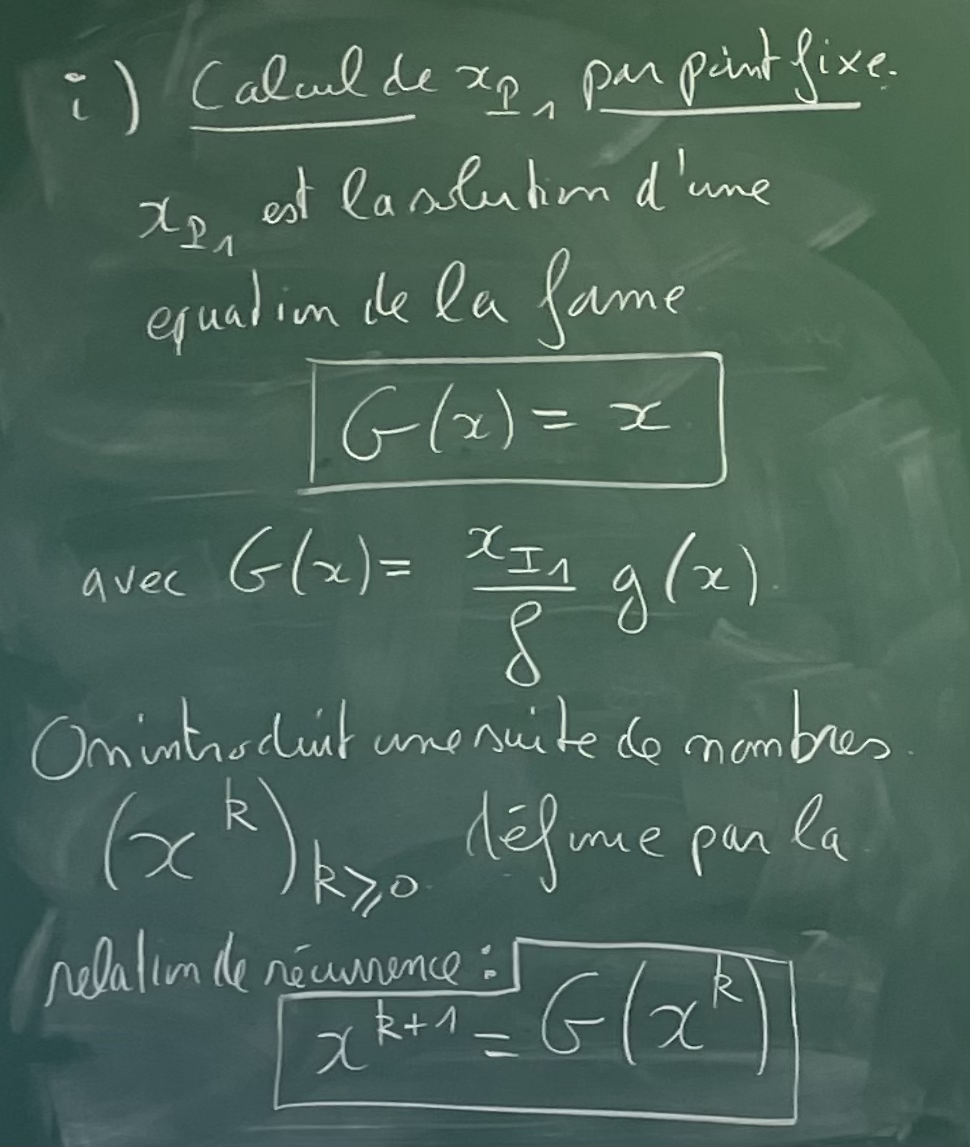 i) Calcul de x_{P_1} par point fixe.
x_{P_1} est la solution d'une
equation de la forme
G(x) = x
avec G(x) = \frac{x_{I_1}}{δ} g(x)
On introduit une suite de nombres.
(x^k)_{k⩾0} définie par la
relation de récurrence :
x^{k+1} = G(x^k)